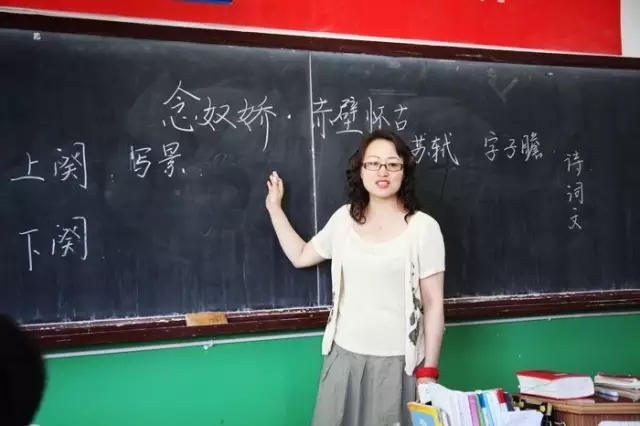 念奴娇·赤壁怀古
苏轼 字子瞻 诗词文
上阕 写景
下阕